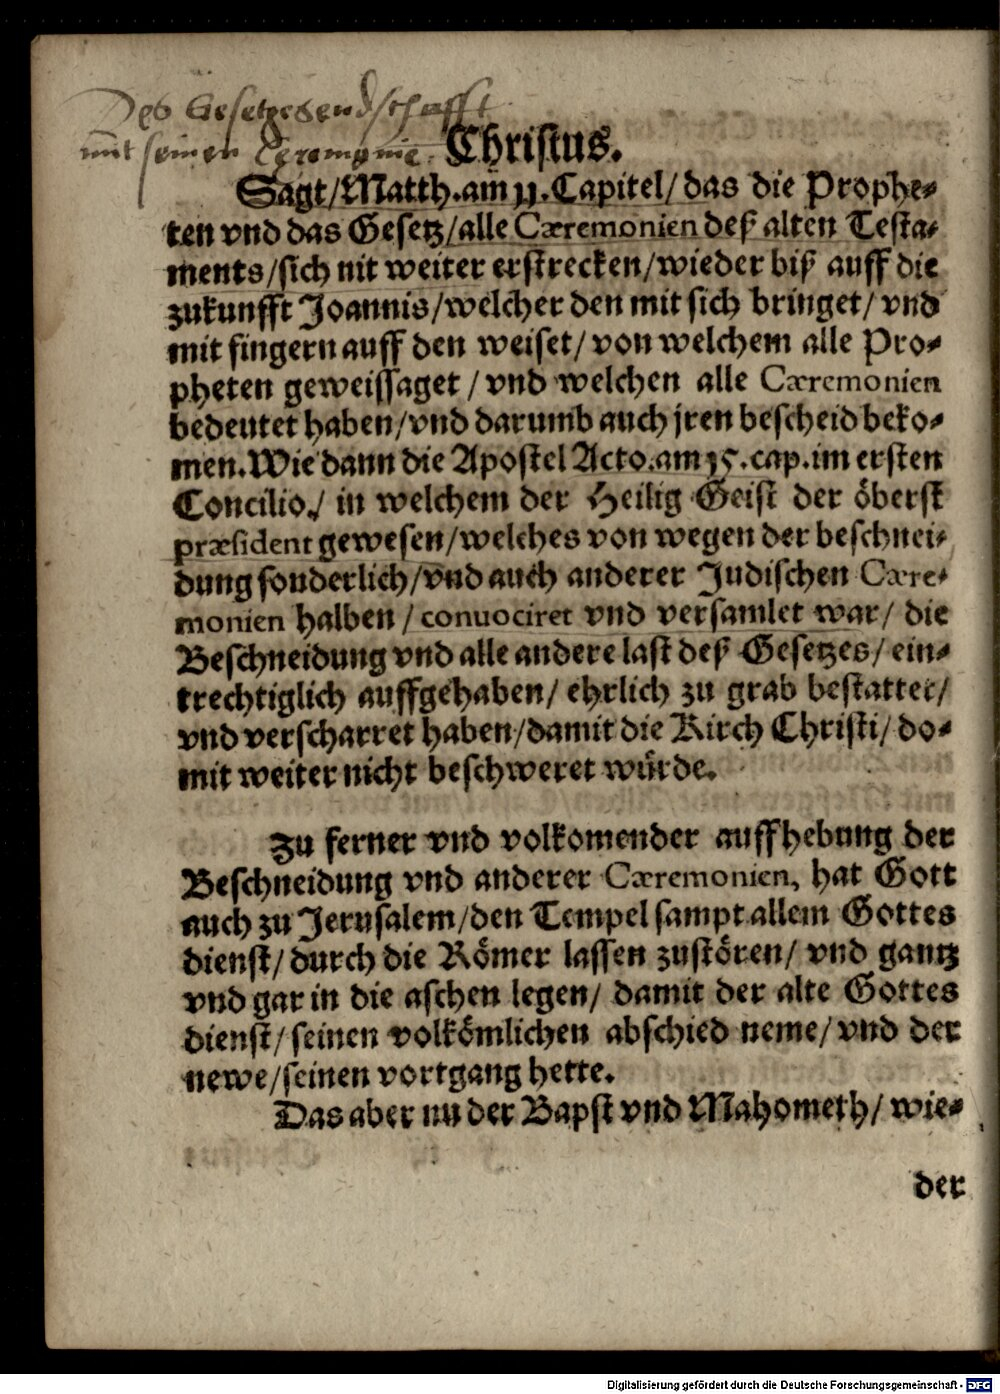 Des Gesetzesendschafft
mit seinen Ceremonie.
Christus.
Sagt/Matth.am 11.Capitel/das die Prophe-
ten vnd das Gesetz/alle Cæremonien deß alten Testa-
ments/sich nit weiter erstrecken/wieder biß auff die
zukunfft Joannis/welcher den mit sich bringet/vnd
mit fingern auff den weiset/von welchem alle Pro-
pheten geweissaget/vnd welchen alle Cæremonien
bedeutet haben/vnd darumb auch jren bescheid beko-
men.Wie dann die Apostel Acto.am 15.cap.im ersten
Concilio/in welchem der Heilig Geist der öberst
præsident gewesen/welches von wegen der beschnei-
dung sonderlich/vnd auch anderer Judischen Cære-
monien halben/conuociret vnd versamlet war/die
Beschneidung vnd alle andere last deß Gesetzes/ein-
trechtiglich auffgehaben/ehrlich zu grab bestattet/
vnd verscharret haben/damit die Kirch Christi/do-
mit weiter nicht beschweret würde.
Zu ferner vnd volkomender auffhebung der
Beschneidung vnd anderer Cæremonien, hat Gott
auch zu Jerusalem/den Tempel sampt allem Gottes
dienst/durch die Römer lassen zustören/vnd gantz
vnd gar in die aschen legen/damit der alte Gottes
dienst/seinen volkömlichen abschied neme/vnd der
newe/seinen vortgang hette.
Das aber nu der Bapst vnd Mahometh/wie-
der
Digitalisierung gefördert durch die Deutsche Forschungsgemeinschaft - DFG